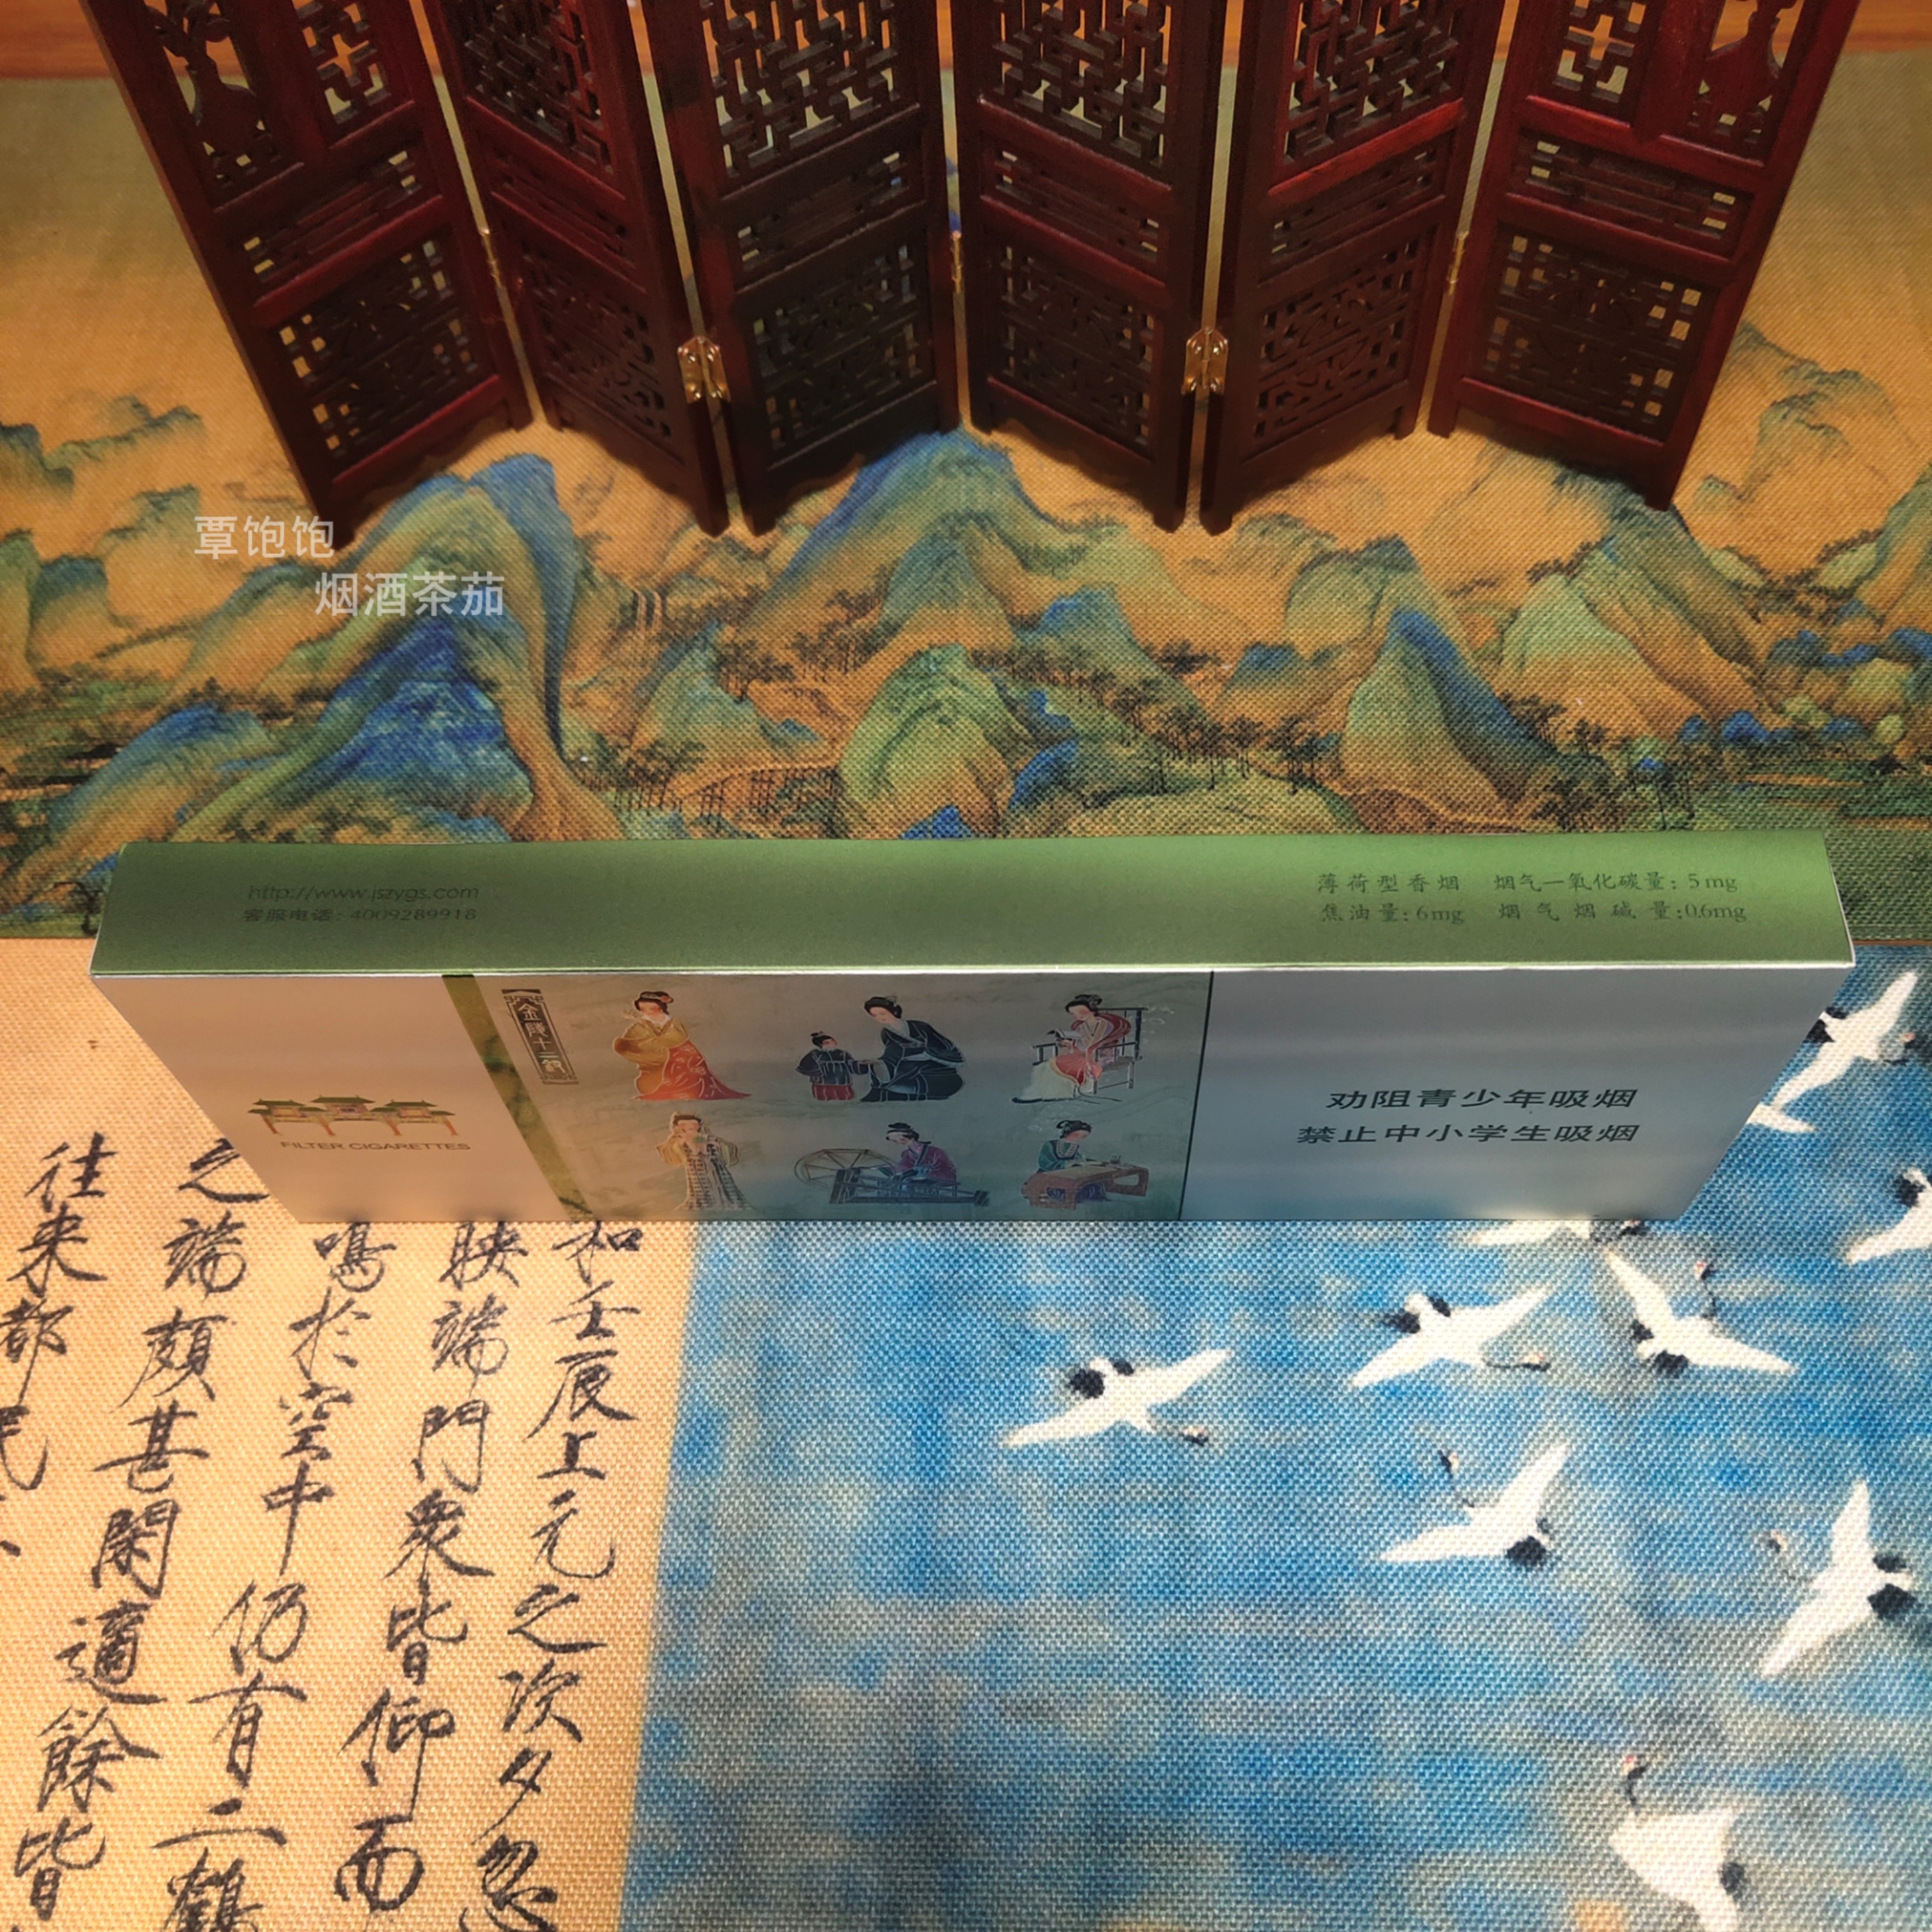 覃饱饱
烟酒茶茄
http://www.jszygs.com
客服电话：4009289918
薄荷型香烟 烟气一氧化碳量：5mg
焦油量：6mg 烟气烟碱量：0.6mg
金陵十二釵
FILTER CIGARETTES
劝阻青少年吸烟
禁止中小学生吸烟
和壬辰上元之次夕忽
映端門衆皆仰而
鳴於空中仍有二鶴
之端頗甚閑適餘皆
往来都民